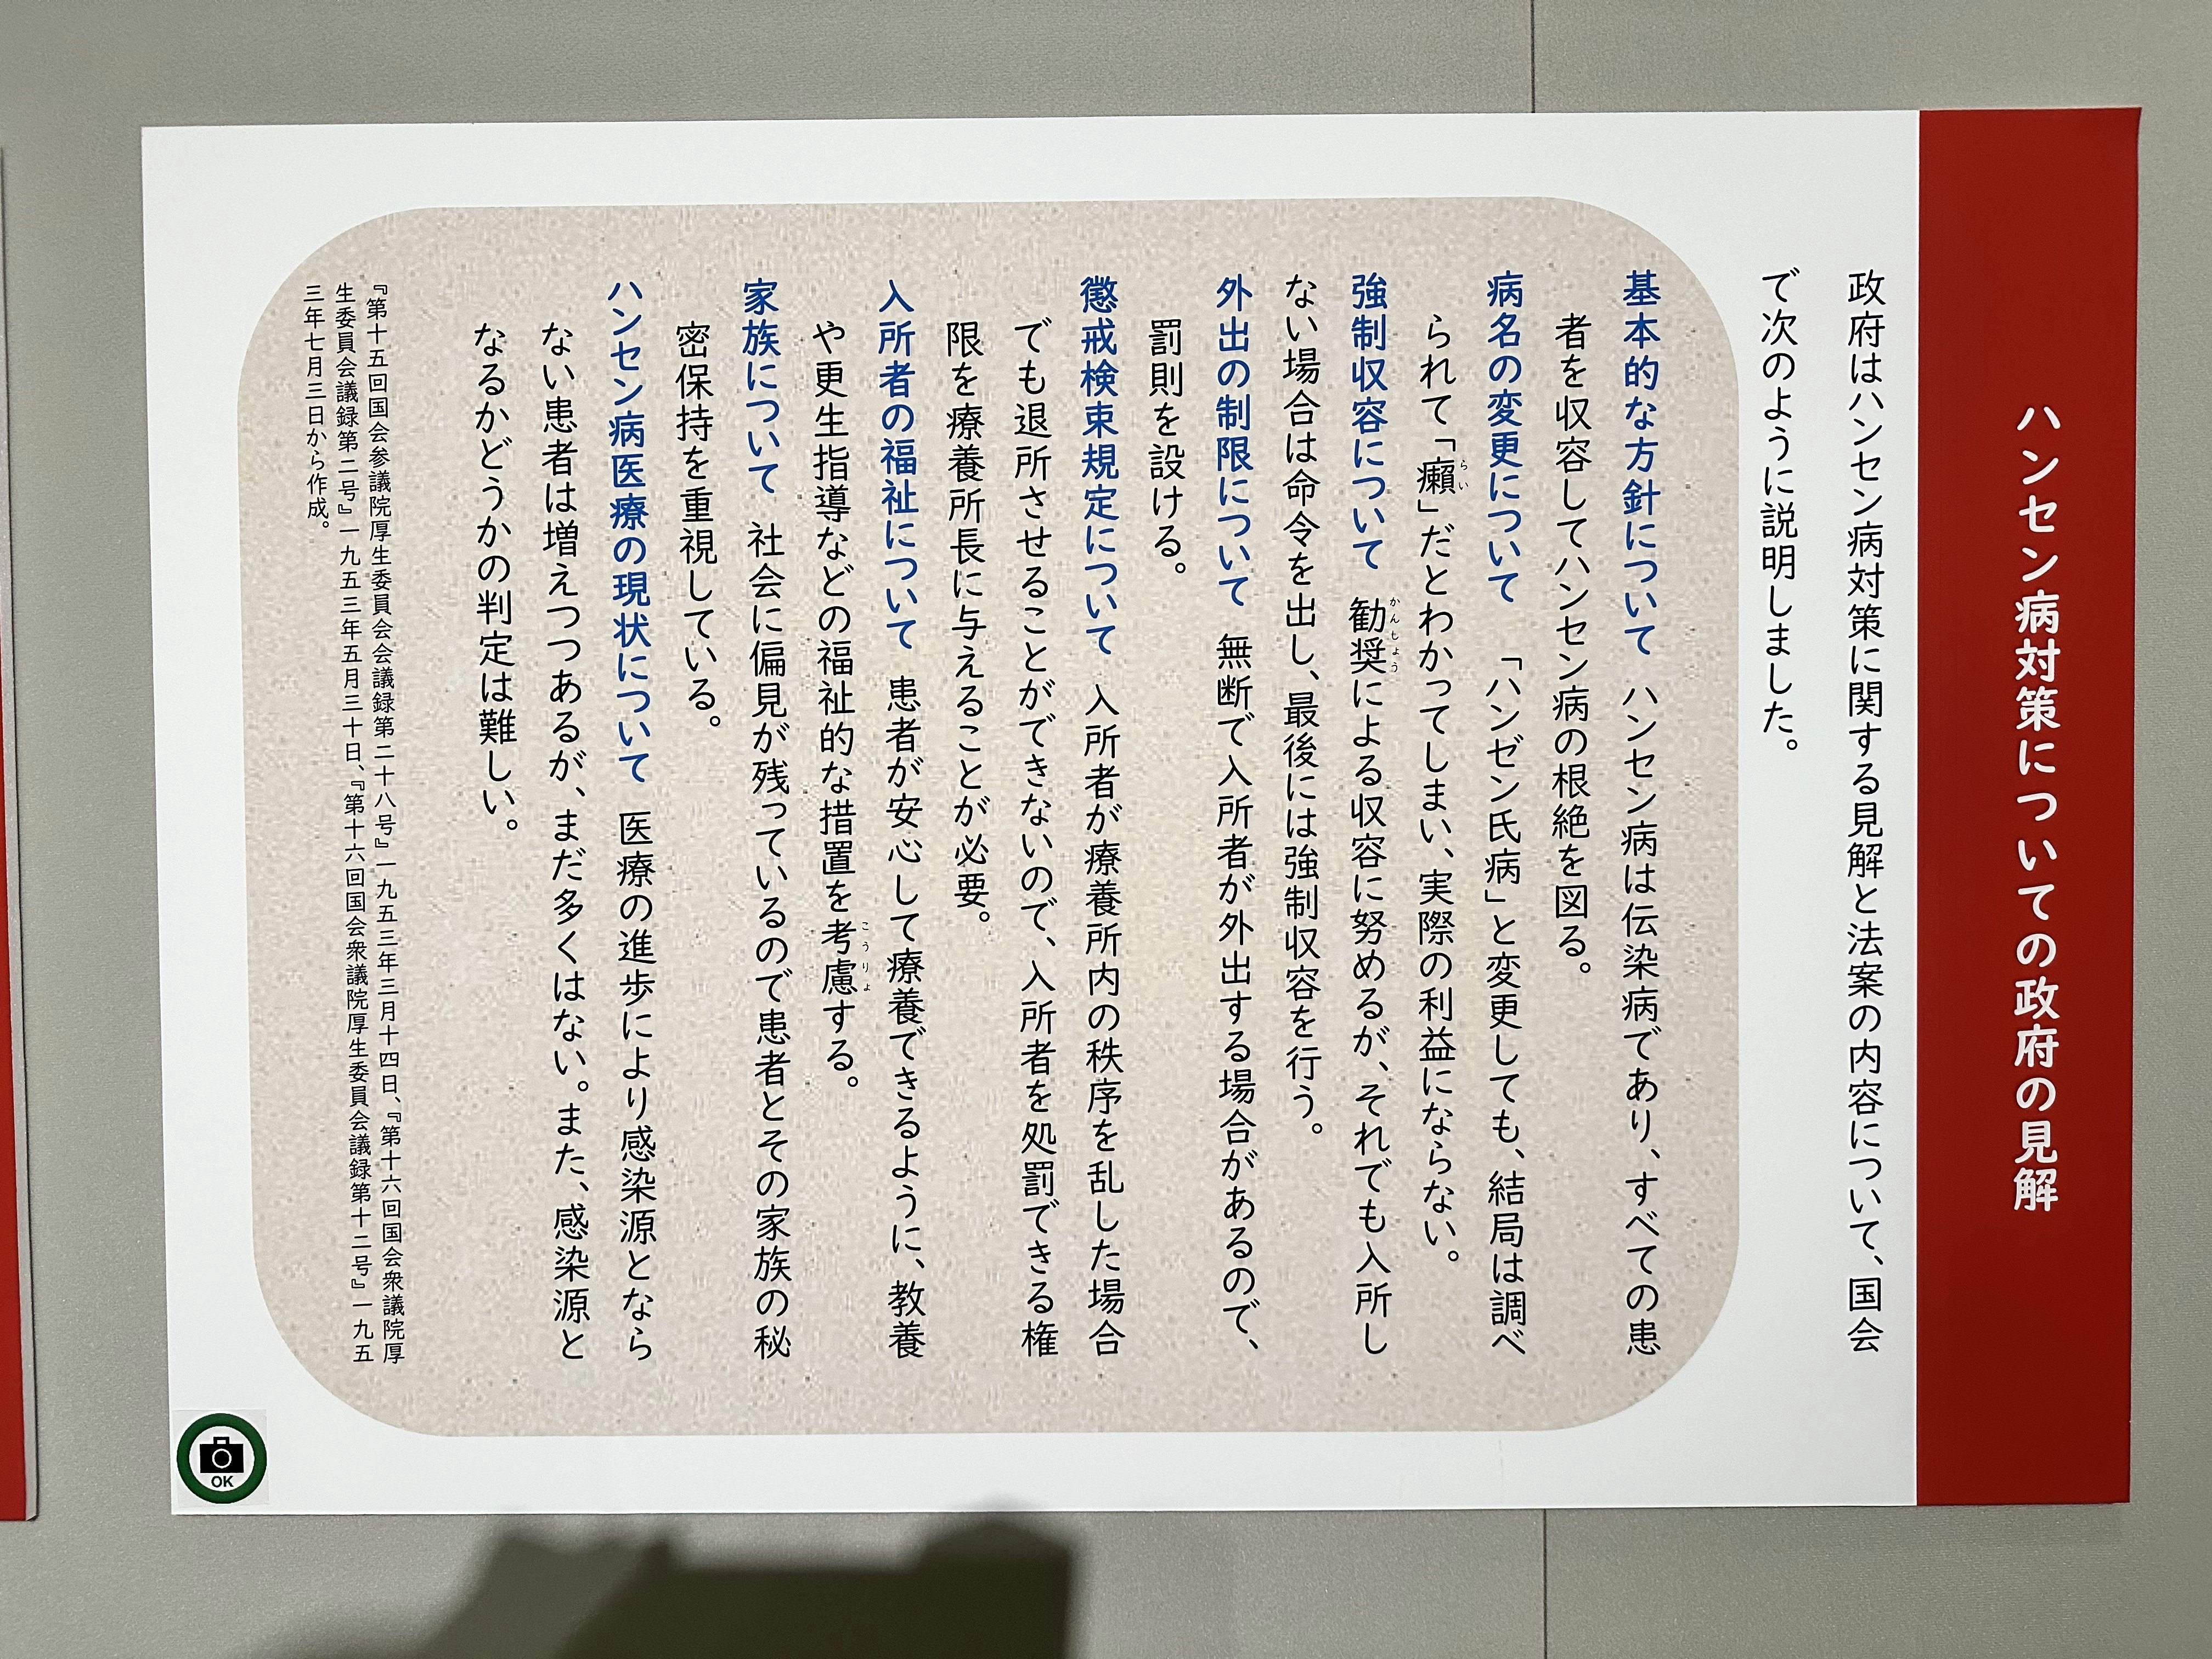 ハンセン病対策についての政府の見解
政府はハンセン病対策に関する見解と法案の内容について、国会
で次のように説明しました。
基本的な方針について ハンセン病は伝染病であり、すべての患
者を収容してハンセン病の根絶を図る。
病名の変更について 「ハンゼン氏病」と変更しても、結局は調べ
られて「癩」だとわかってしまい、実際の利益にならない。
らい
強制収容について 勧奨による収容に努めるが、それでも入所し
かんしょう
ない場合は命令を出し、最後には強制収容を行う。
外出の制限について 無断で入所者が外出する場合があるので、
罰則を設ける。
懲戒検束規定について 入所者が療養所内の秩序を乱した場合
でも退所させることができないので、入所者を処罰できる権
限を療養所長に与えることが必要。
入所者の福祉について 患者が安心して療養できるように、教養
や更生指導などの福祉的な措置を考慮する。
こうりょ
家族について 社会に偏見が残っているので患者とその家族の秘
密保持を重視している。
ハンセン病医療の現状について 医療の進歩により感染源となら
ない患者は増えつつあるが、まだ多くはない。また、感染源と
なるかどうかの判定は難しい。
『第十五回国会参議院厚生委員会会議録第二十八号』一九五三年三月十四日、『第十六回国会衆議院厚
生委員会会議録第二号』一九五三年五月三十日、『第十六回国会衆議院厚生委員会議録第十二号』一九五
三年七月三日から作成。
OK